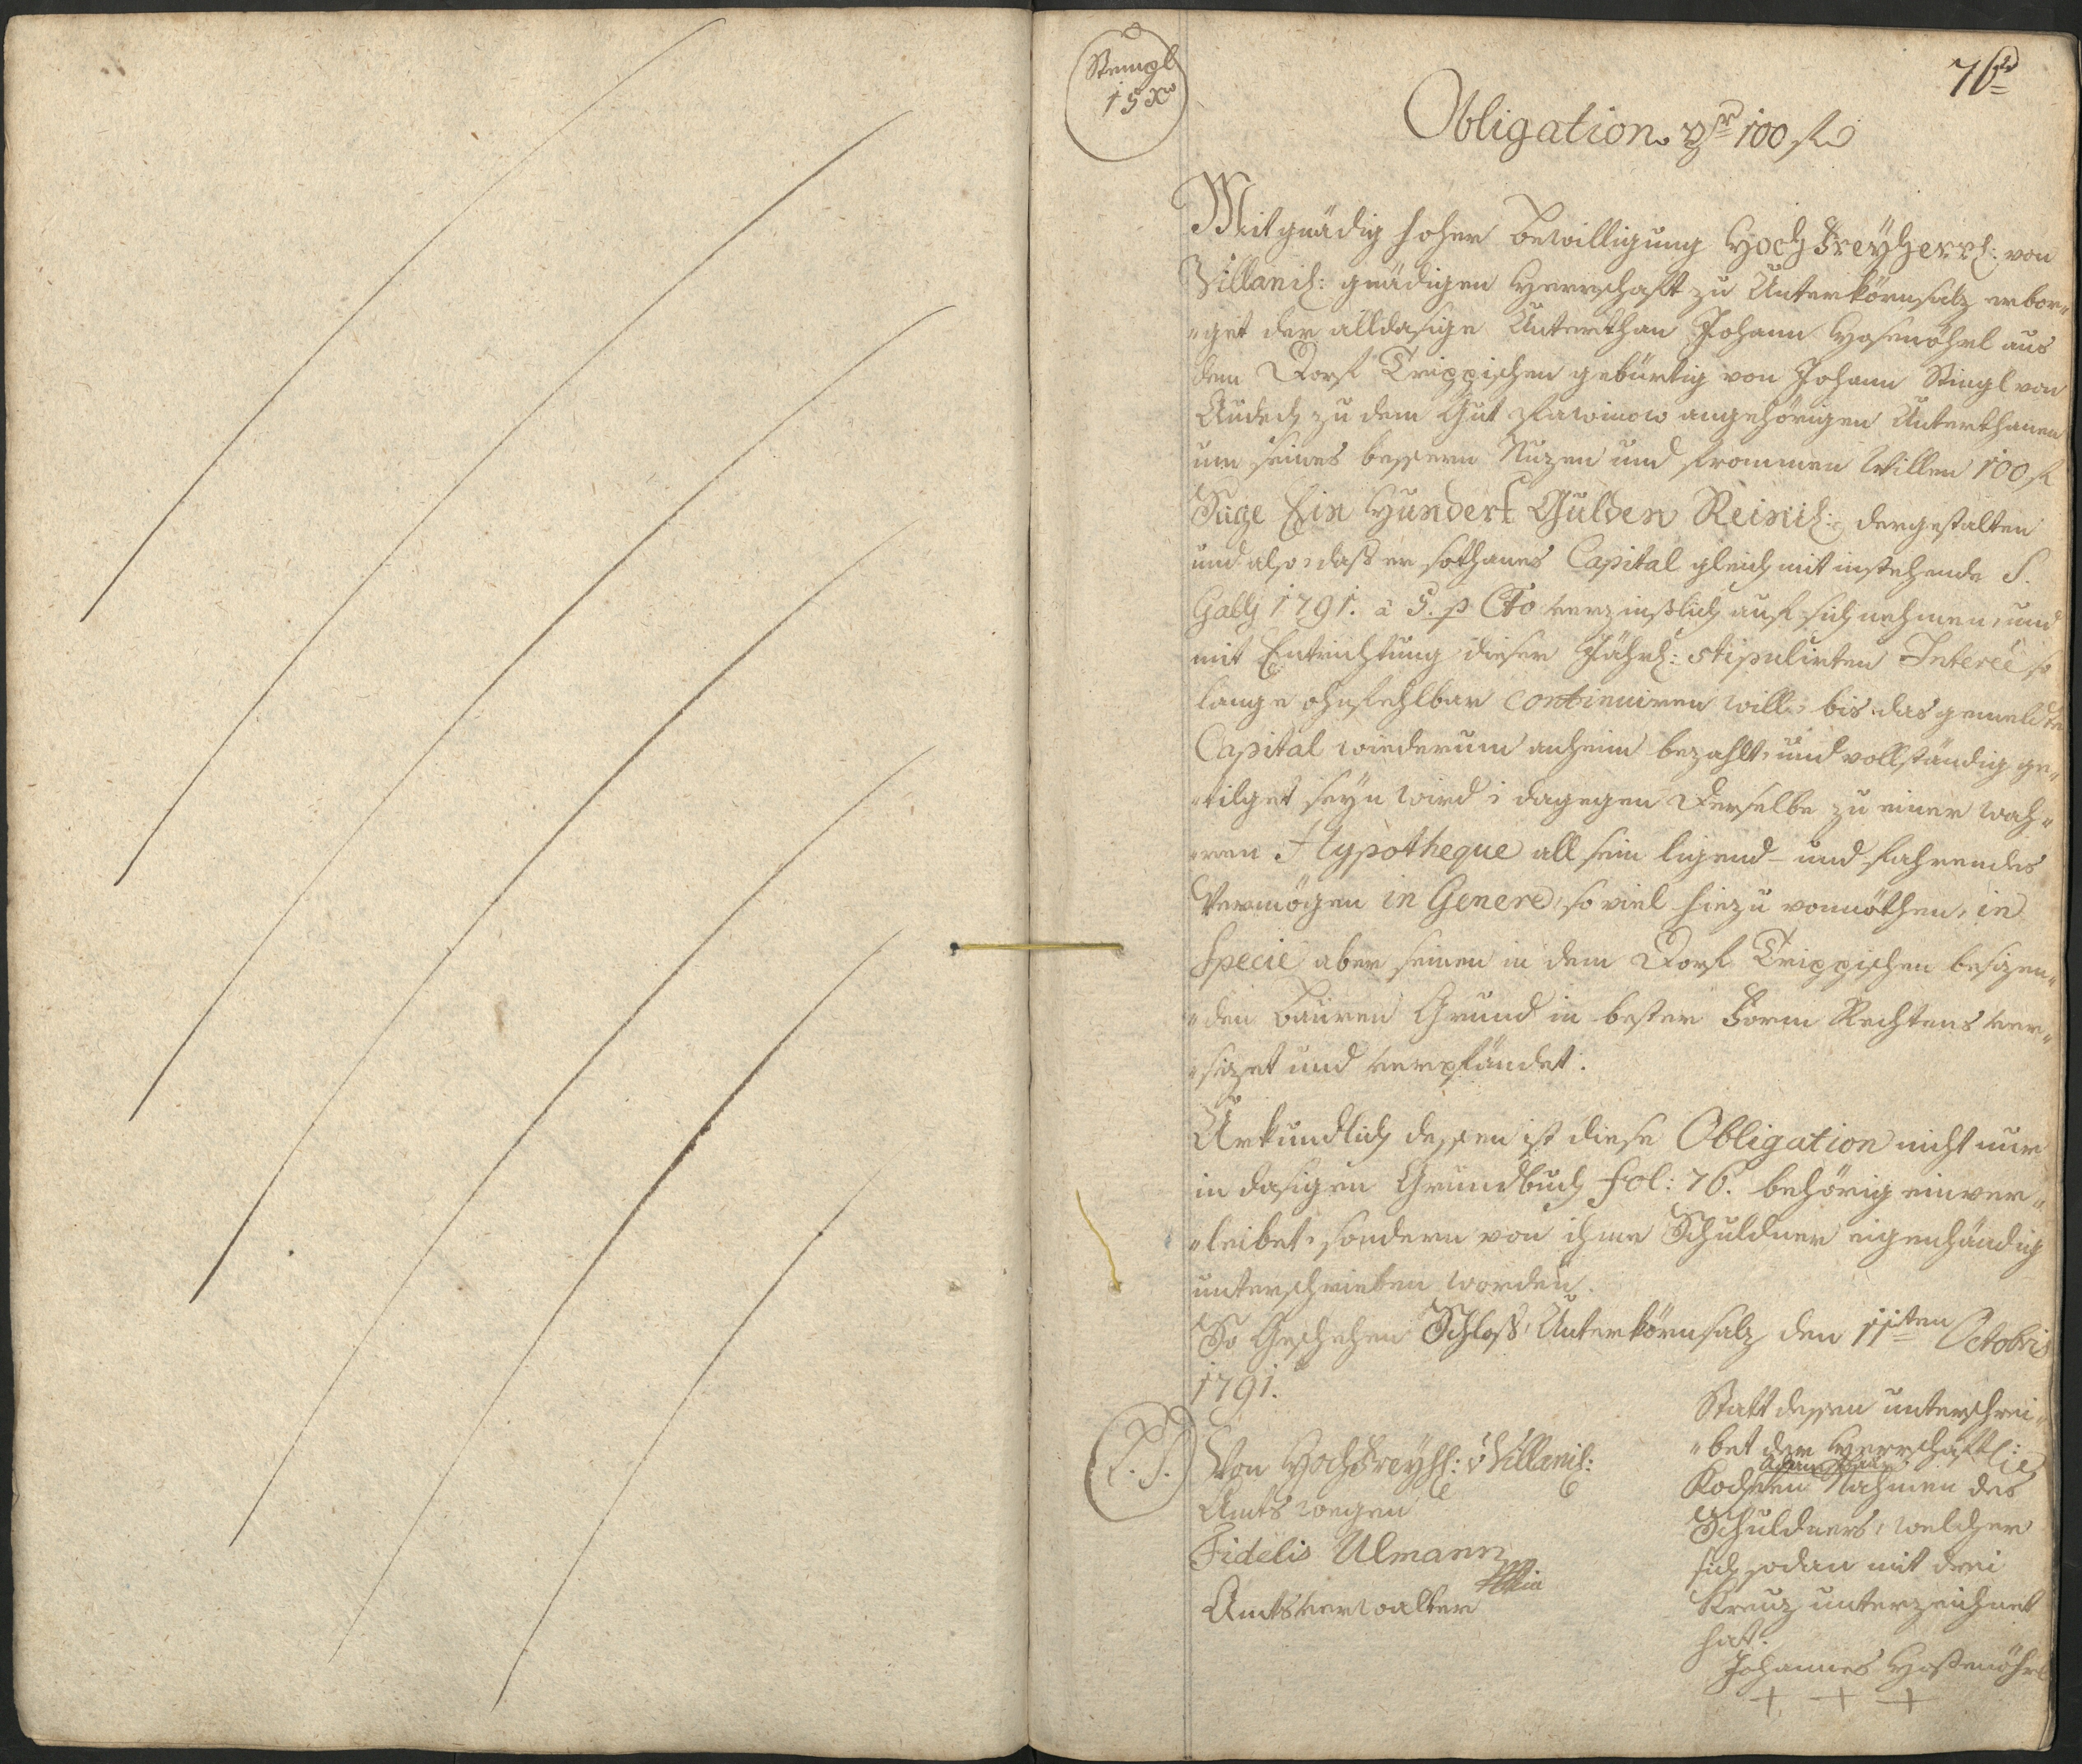 Stempl
15 x
76
Obligation pr 100 fl
Mit gnädig hoher Bewilligung Hoch Freyherrl: von
Villanisch: gnädigen Herrschaft zu Unterkörnsalz erbor„
„get der alldasige Unterthan Johann Hosenöhrl aus
dem Dorf Trippischen gebürtig von Johann Stingl von
zu dem Gut angehörigen Unterthanen
um seines bessern Nuzen und frommen Willen 100 fl
Sage Ein Hundert Gulden Reinisch: dergestalten
und also, daß er sothanes Capital gleich mit instehende S.
Gally 1791. à 5. p Cto verzinßlich auf sich nehmen, und
mit Entrichtung dieser Jährl: stipulirten Intereé so
lange ohnfehlbar continuiren will, bis das gemeldte
Capital wiederum anheim bezahlt, und vollständig ge„
„tilget seyn wird; dagegen Derselbe zu einer wah„
„ren Hypotheque all sein ligend- und fahrendes
Vermögen in Genere, so viel hiezu vonnöthen, in
Specie aber seinen in dem Dorf Trippischen besizen„
„den Bauren Grund in bester Form Rechtens ver„
„sezet und verpfändet.
Urkundlich dessen ist diese Obligation nicht nur
in dasigen Grundbuch fol: 76. behörig einver„
„leibet, sondern von ihme Schuldner eigenhändig
unterschrieben worden.
So Geschehen Schloß Unterkörnsalz den 11ten Octobris
1791.
L. S.
Von Hoch Freyhl: v Villanisch:
Amts wegen
Fidelis Ulmann
Amtsverwalter
Statt dessen unterschrei„
„bet der Herrschaftl:
den Nahmen des
Schuldners, welcher
sich sodan mit drei
Kreuz unterzeichnet
hat.
Johannes Hosenöhrl
+ + +